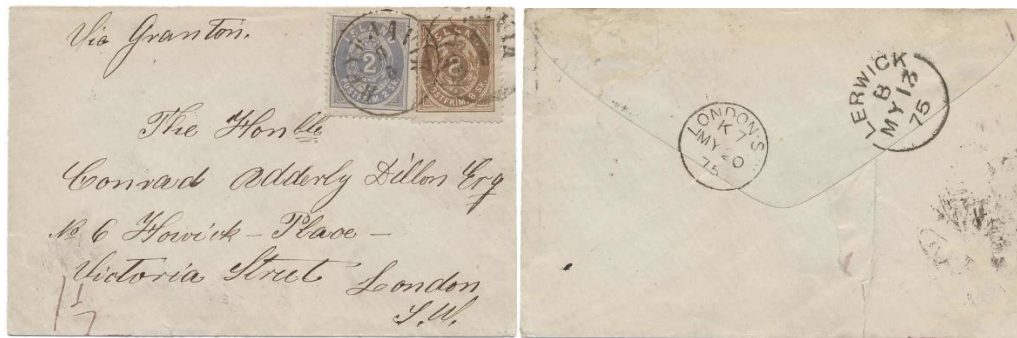 Via Granton.
2
POSTFRIM. 2 SK.
8
POSTFRIM. 8 SK.
The Honble
Conrad Adderly Dillon Esq
No 6 Howick - Place -
Victoria Street London
S.W.
LONDON·S
K 7
MY 20
75
LERWICK
B
MY 13
75